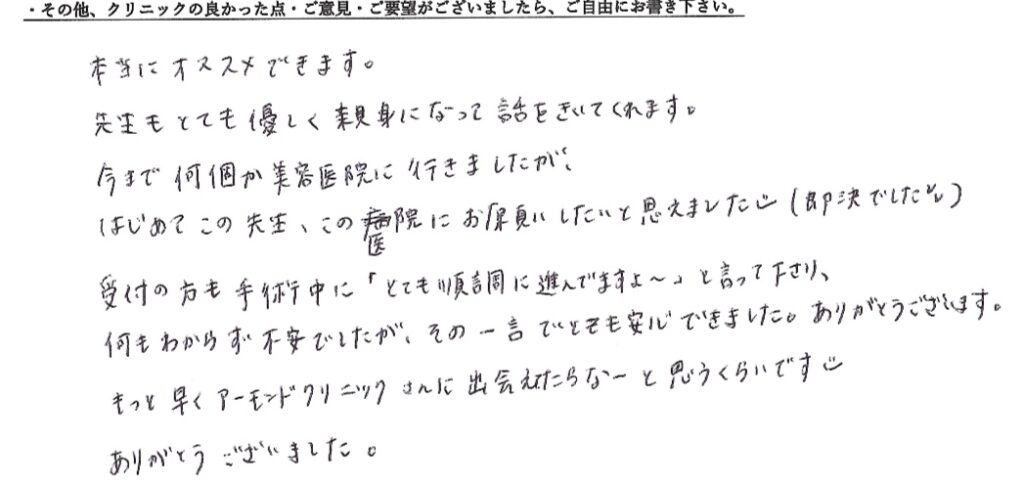 ・その他、クリニックの良かった点・ご意見・ご要望がございましたら、ご自由にお書き下さい。
本当にオススメできます。
先生もとても優しく親身になって話をきいてくれます。
今まで何個か美容医院に行きましたが、
はじめてこの先生、この医院にお願いしたいと思えました (即決でした)
受付の方も手術中に「とても順調に進んでますよ～」と言って下さり、
何もわからず不安でしたが、その一言でとても安心できました。ありがとうございます。
もっと早くアーモンドクリニックさんに出会えたらなーと思うくらいです
ありがとうございました。